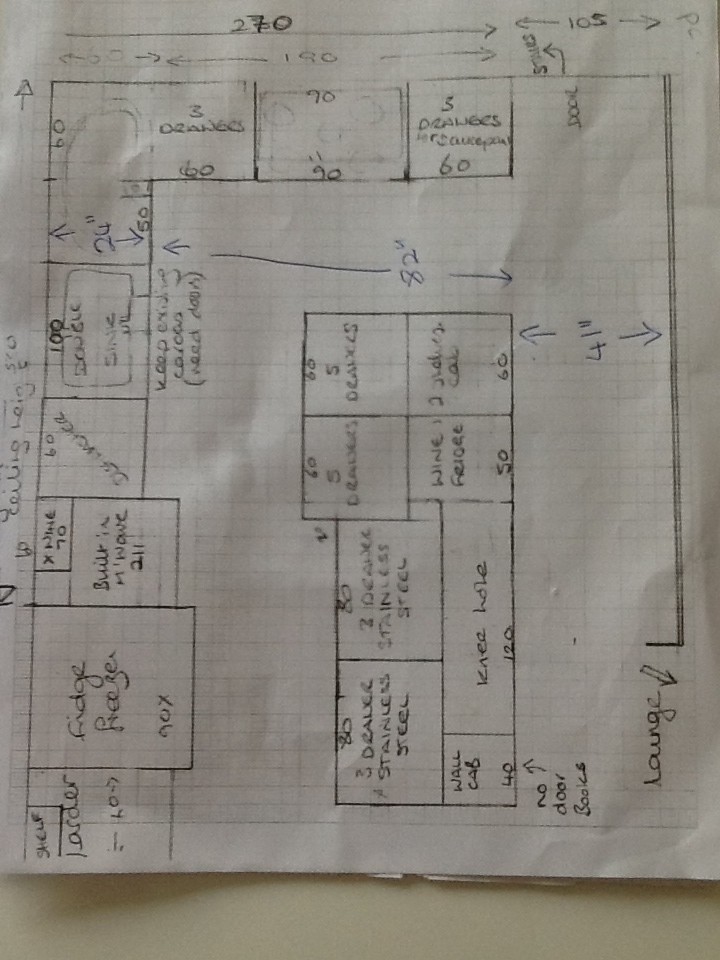 270
105
60
190
STAIRS
DOOR
60
3
DRAWERS
60
90
90
3
DRAWERS
for saucepans
60
24"
50
82"
41"
100
DOUBLE
SINK
KEEP EXISTING
(need doors)
60
Ceiling height
X WINE
70
Built in
M'WAVE
211
Fridge
Freezer
90X
SHELF
larder
60
5
DRAWERS
60
5
DRAWERS
CAB
60
WINE
FRIDGE
50
80
3 DRAWER
STAINLESS
STEEL
80
3 DRAWER
STAINLESS
STEEL
Knee hole
120
WALL
CAB
40
NO
door
Books
Lounge